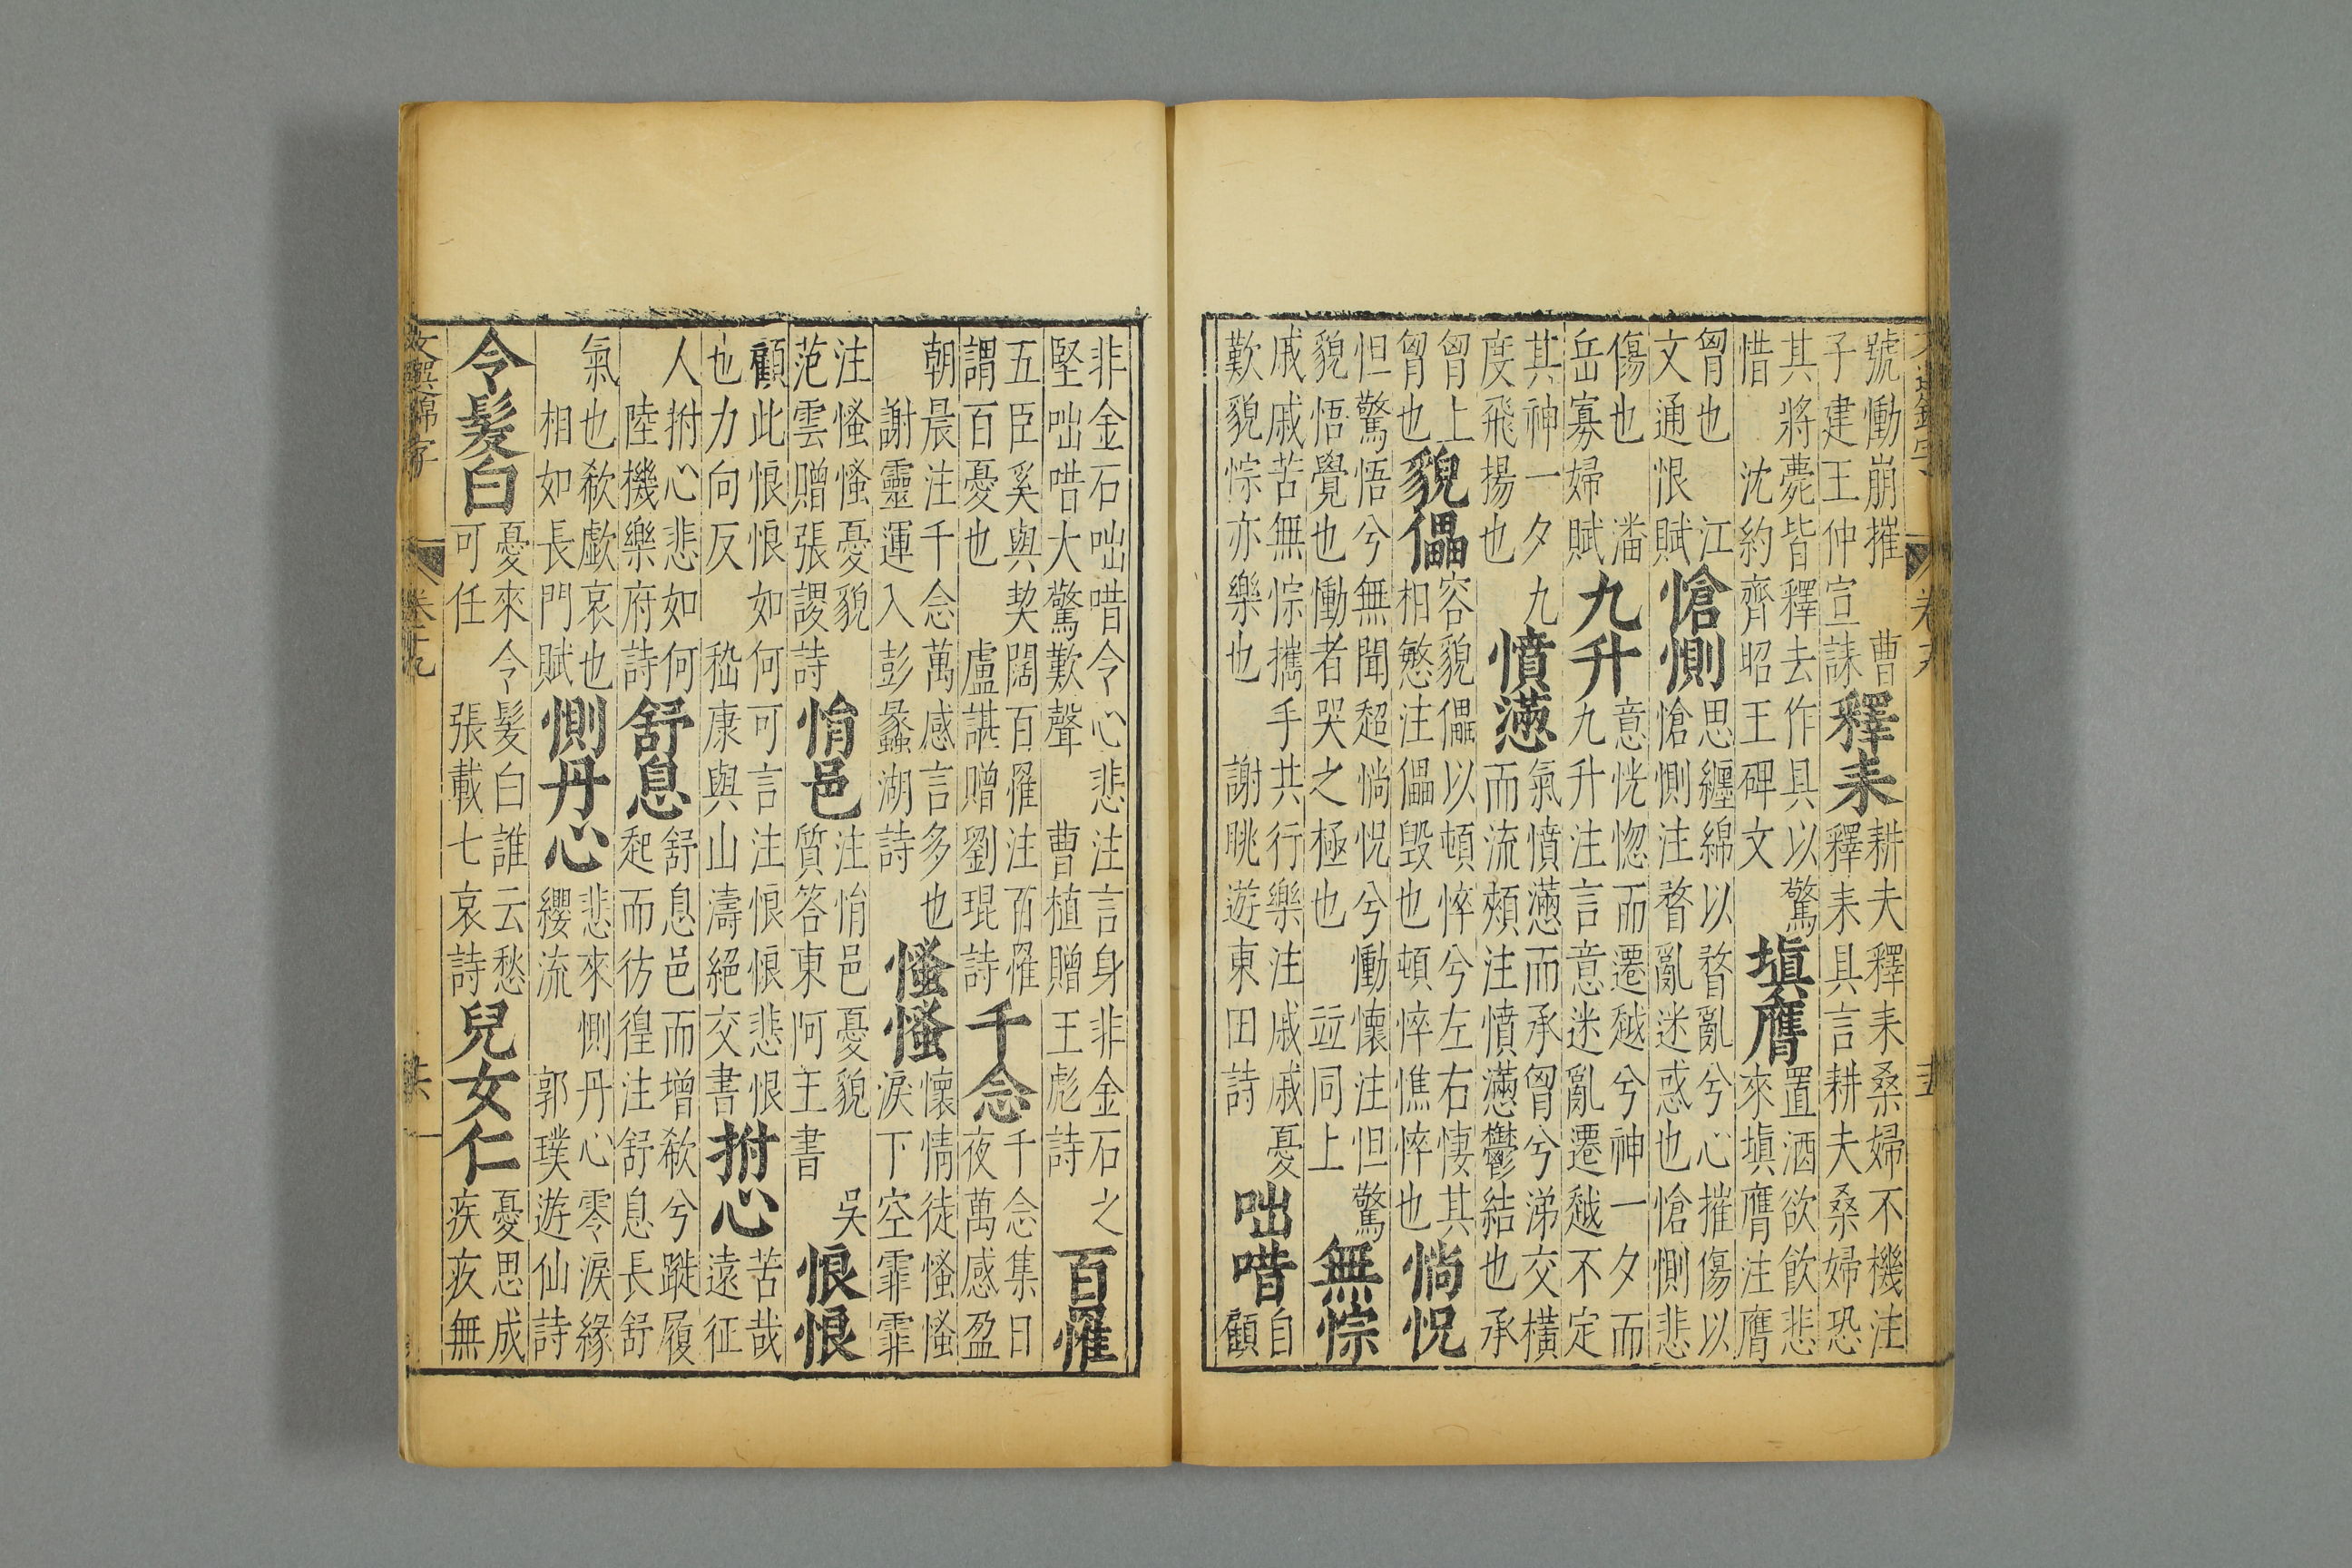 號慟崩摧曹
子建王仲宣誄
釋耒
耕夫釋耒桑婦不機注
釋耒具言耕夫桑婦恐
其將薨皆釋去作具以驚
惜沈約齊昭王碑文
填膺
置酒欲飲悲
來填膺注膺
胷也江
文通恨賦
愴惻
思纏綿以瞀亂兮心摧傷以
愴惻注瞀亂迷惑也愴惻悲
傷也潘
岳寡婦賦
九升
意恍惚而遷越兮神一夕而
九升注言意迷亂遷越不定
其神一夕九
度飛揚也
憤懣
氣憤懣而承胷兮涕交橫
而流頰注憤懣鬱結也承
胷上
胷也
貌儡
容貌儡以頓悴兮左右悽其
相慜注儡毀也頓悴憔悴也
惝怳
怛驚悟兮無聞超惝怳兮慟懷注怛驚
貌悟覺也慟者哭之極也竝同上
無悰
戚戚苦無悰攜手共行樂注戚戚憂
歎貌悰亦樂也謝眺遊東田詩
咄唶
自
顧
非金石咄唶令心悲注言身非金石之
堅咄唶大驚歎聲曹植贈王彪詩
百罹
五臣奚與契闊百罹注百罹
謂百憂也盧諶贈劉琨詩
千念
千念集日
夜萬感盈
朝晨注千念萬感言多也
謝靈運入彭蠡湖詩
慅慅
懷情徒慅慅
淚下空霏霏
注慅慅憂貌
范雲贈張謖詩
悁邑
注悁邑憂貌吳
質答東阿王書
恨恨
顧此恨恨如何可言注恨恨悲恨
也力向反嵇康與山濤絕交書
拊心
苦哉
遠征
人拊心悲如何
陸機樂府詩
舒息
舒息邑而增欷兮蹝履
起而彷徨注舒息長舒
氣也欷歔哀也
相如長門賦
惻丹心
悲來惻丹心零淚緣
纓流郭璞遊仙詩
令髮白
憂來令髮白誰云愁
可任張載七哀詩
兒女仁
憂思成
疾疢無
文選錦字
卷十九